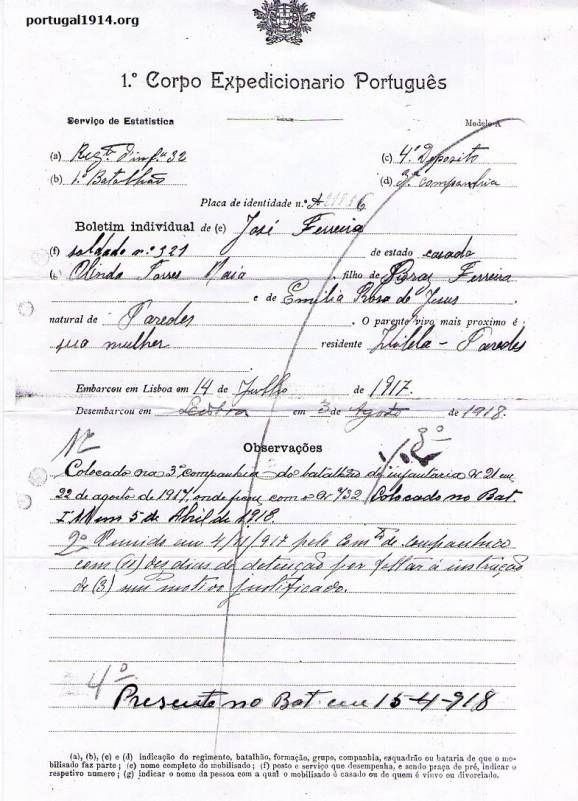 portugal1914.org
1.º Corpo Expedicionario Português
Serviço de Estatistica
Modelo A
(a) Regto d'infa 32 (c) 4º Deposito
(b) 1º Batalhão (d) 3ª companhia
Placa de identidade n.º A
Boletim individual de (e) José Ferreira
(f) soldado nº 321 de estado casado
Olinda Torres Maia filho de Ferreira
e de Emilia Rosa de Jesus
natural de Paredes . O parente vivo mais proximo é
sua mulher residente Vilela - Paredes
Embarcou em Lisboa em 14 de Julho de 1917.
Desembarcou em Lisboa em 3 de Agosto de 1918.
Observações
3º
Colocado na 3ª companhia do batalhão de infantaria nº 21 em
22 de agosto de 1917, onde ficou com o nº 732 Colocado no Bat.
I. 11 em 5 de Abril de 1918.
2º Punido em 4/11/917 pelo Comte de companhia
com dez dias de detenção por faltar á instrução
de (3) sem motivo justificado.
4º
Presente no Bat. em 15-4-918
(a), (b), (c) e (d) indicação do regimento, batalhão, formação, grupo, companhia, esquadrão ou bataria de que o mo-
bilisado faz parte ; (e) nome completo do mobilisado ; (f) posto e serviço que desempenha, e sendo praça de pré, indicar o
respetivo numero ; (g) indicar o nome da pessoa com a qual o mobilisado é casado ou de quem é viuvo ou divorciado.